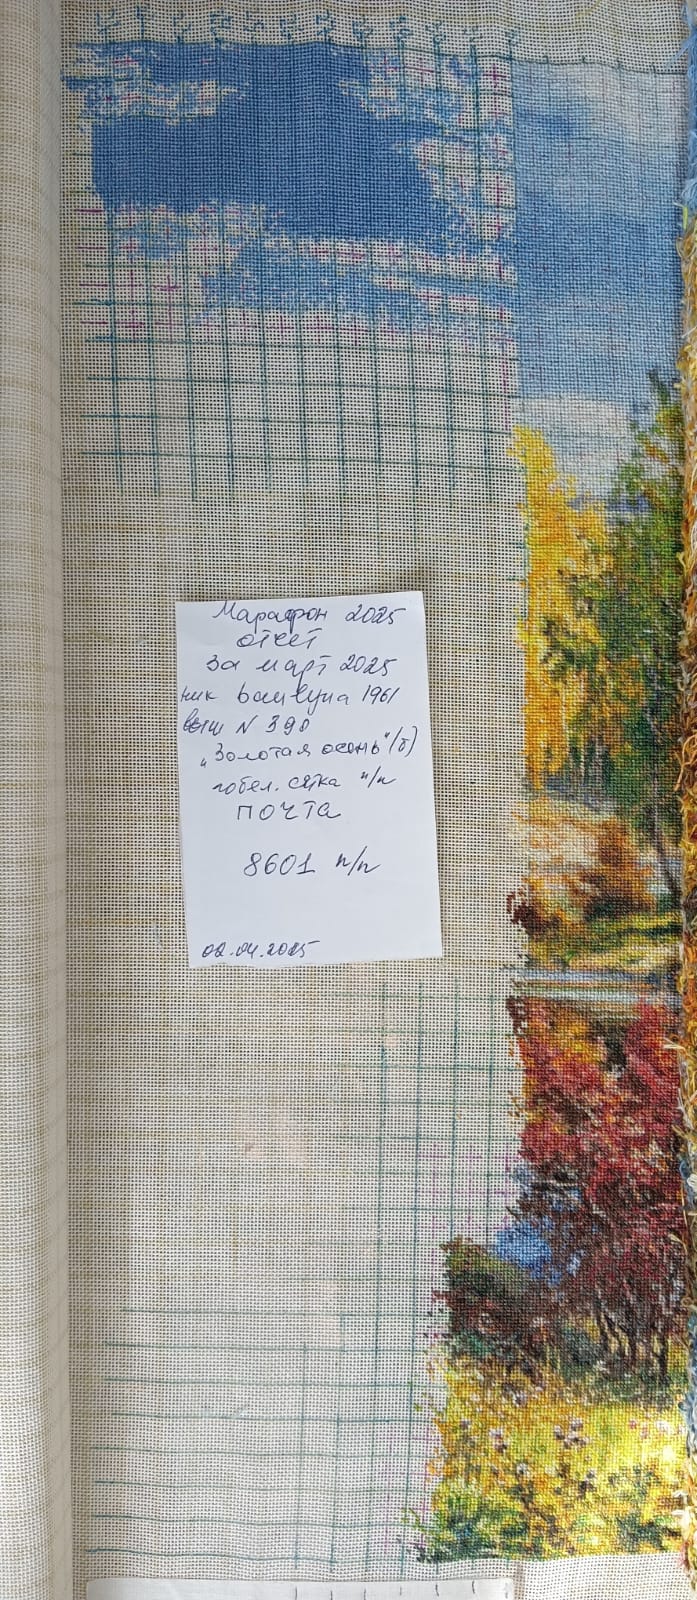 Марафон 2025
отчет
за март 2025
ник 1961
N 390
"Золотая осень" (б)
гобел. сетка п/п
ПОЧТА
8601 п/п
02.04.2025